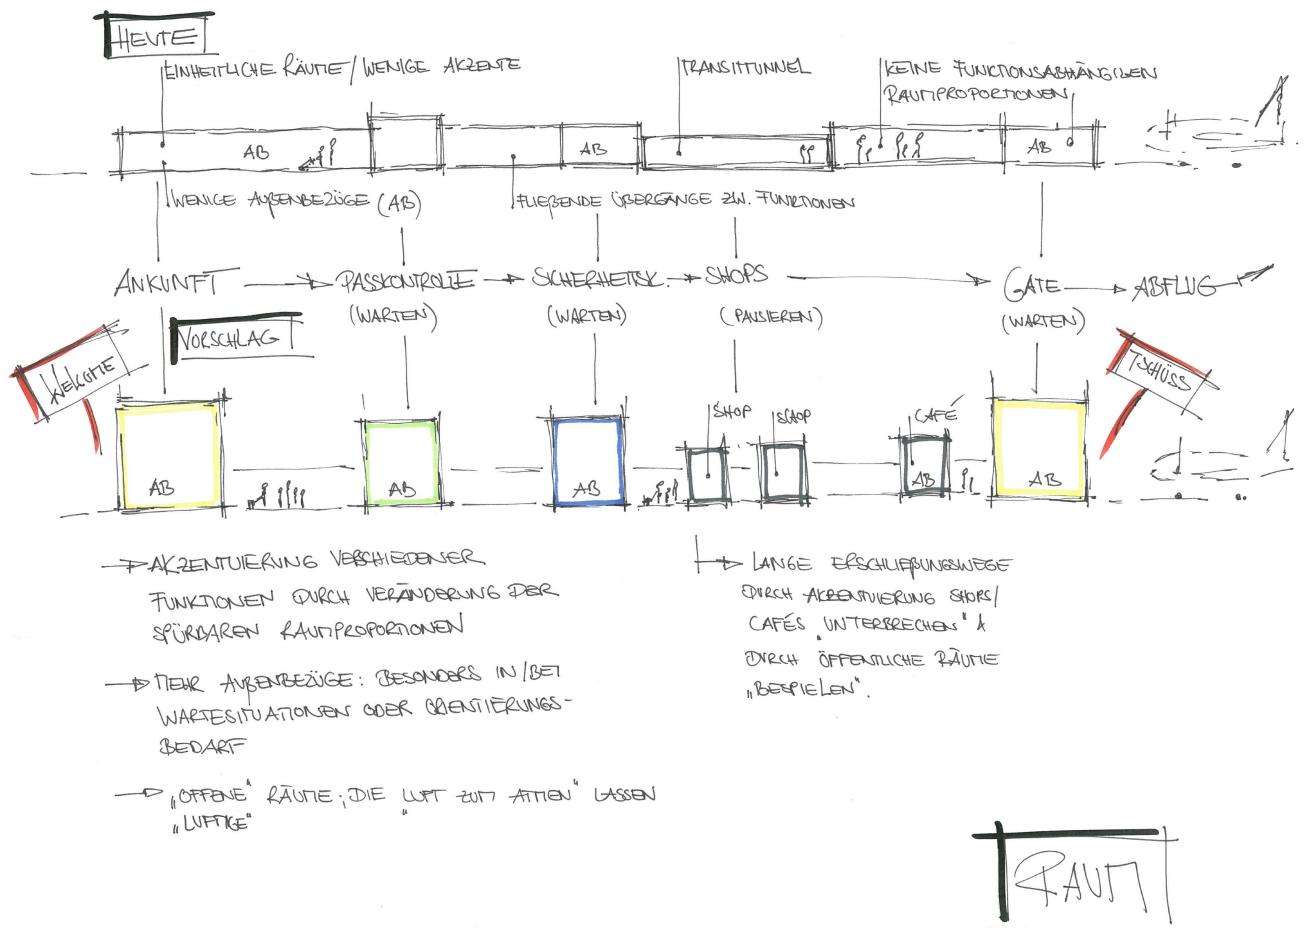 HEUTE
EINHEITLICHE RÄUME / WENIGE AKZENTE
TRANSITTUNNEL
KEINE FUNKTIONSABHÄNGIGEN
RAUMPROPORTIONEN
AB
AB
AB
WENIGE AUßENBEZÜGE (AB)
FLIEßENDE ÜBERGÄNGE ZW. FUNKTIONEN
ANKUNFT
PASSKONTROLLE
SICHERHEITSK.
SHOPS
GATE
ABFLUG
(WARTEN)
(WARTEN)
(PAUSIEREN)
(WARTEN)
VORSCHLAG
WELCOME
TSCHÜSS
SHOP
SHOP
CAFÉ
AB
AB
AB
AB
AB
AKZENTUIERUNG VERSCHIEDENER
FUNKTIONEN DURCH VERÄNDERUNG DER
SPÜRBAREN RAUMPROPORTIONEN
MEHR AUßENBEZÜGE: BESONDERS IN/BEI
WARTESITUATIONEN ODER ORIENTIERUNGS-
BEDARF
„OFFENE" RÄUME; DIE „LUFT ZUM ATMEN" LASSEN
„LUFTIGE"
LANGE ERSCHLIEßUNGSWEGE
DURCH AKZENTUIERUNG SHOPS/
CAFÉS „UNTERBRECHEN" &
DURCH ÖFFENTLICHE RÄUME
„BESPIELEN".
RAUM